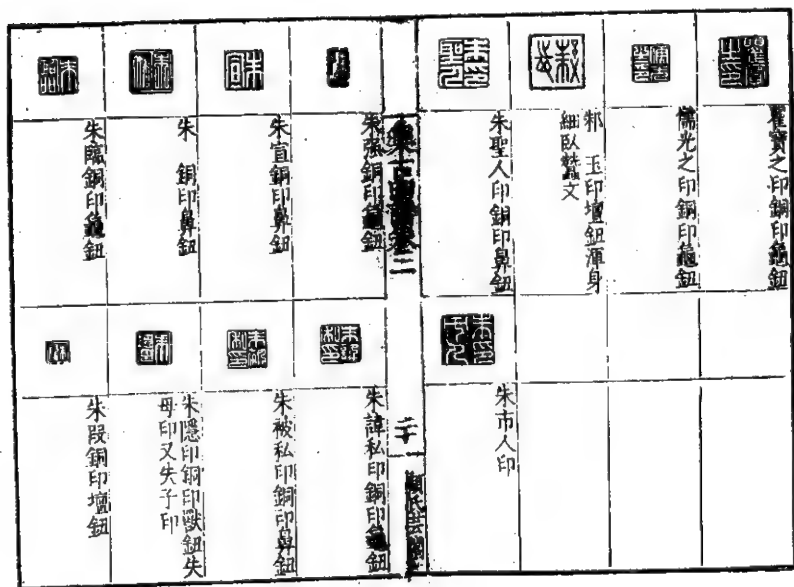 瞿寶之印銅印龜鈕
儒光之印銅印龜鈕
邾　玉印壇鈕渾身
細臥蠶文
朱聖人印銅印鼻鈕
朱市人印
集古印譜卷二
二十
顧氏芸閣
朱強銅印龜鈕
朱宣銅印鼻鈕
朱　銅印鼻鈕
朱臨銅印龜鈕
朱諱私印銅印龜鈕
朱被私印銅印鼻鈕
朱隱印銅印獸鈕失
母印又失子印
朱段銅印壇鈕